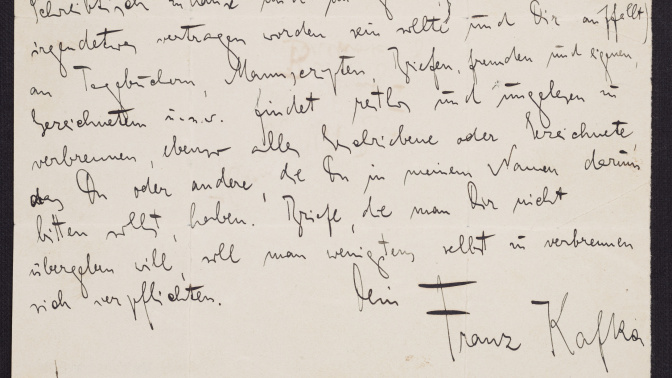 Schreibtisch zuhause und im
irgendetwas vertragen worden sein sollte und Dir auffällt)
an Tagebüchern, Manuscripten, Briefen, fremden und eignen,
Gezeichnetem u.s.w. findet restlos und ungelesen zu
verbrennen, ebenso alles Geschriebene oder Gezeichnete,
das Du oder andere, die Du in meinem Namen darum
bitten sollst, haben. Briefe, die man Dir nicht
übergeben will, soll man wenigstens selbst zu verbrennen
sich verpflichten.
Dein Franz Kafka